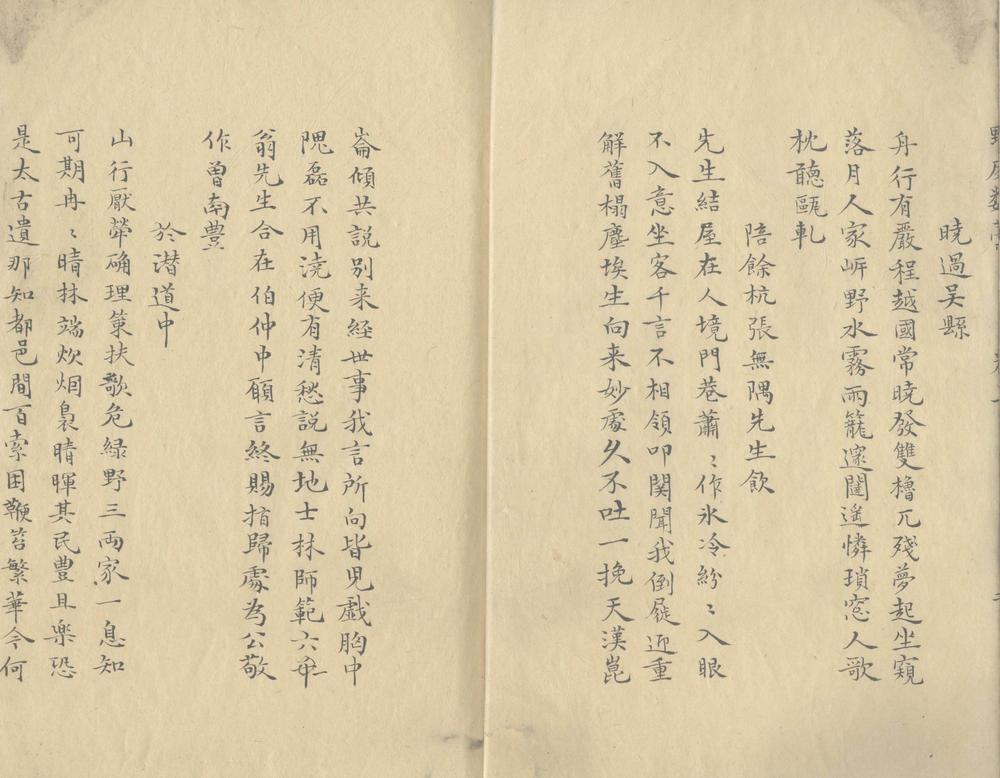 曉過吴縣
舟行有嚴程越國常曉發雙櫓兀殘夢起坐窺
落月人家㟁野水霧雨籠邃闥遙憐瑣窓人歌
枕聽鴎軋
陪餘杭張無隅先生飲
先生結屋在人境門巷蕭〻作氷冷紛〻入眼
不入意坐客千言不相領叩関聞我倒屣迎重
解舊榻塵埃生向来妙處久不吐一挽天漢崑
崙傾共説别来経世事我言所向皆児戯胸中
隗磊不用澆便有清愁説無地士林師範六年
翁先生合在伯仲中願言終賜指歸處為公敬
作曽南豊
於潜道中
山行厭犖确理策扶歌危緑野三両家一息知
可期冉〻晴林端炊烟裊晴暉其民豊且楽恐
是太古遺那知都邑間百索困鞭笞繁華今何